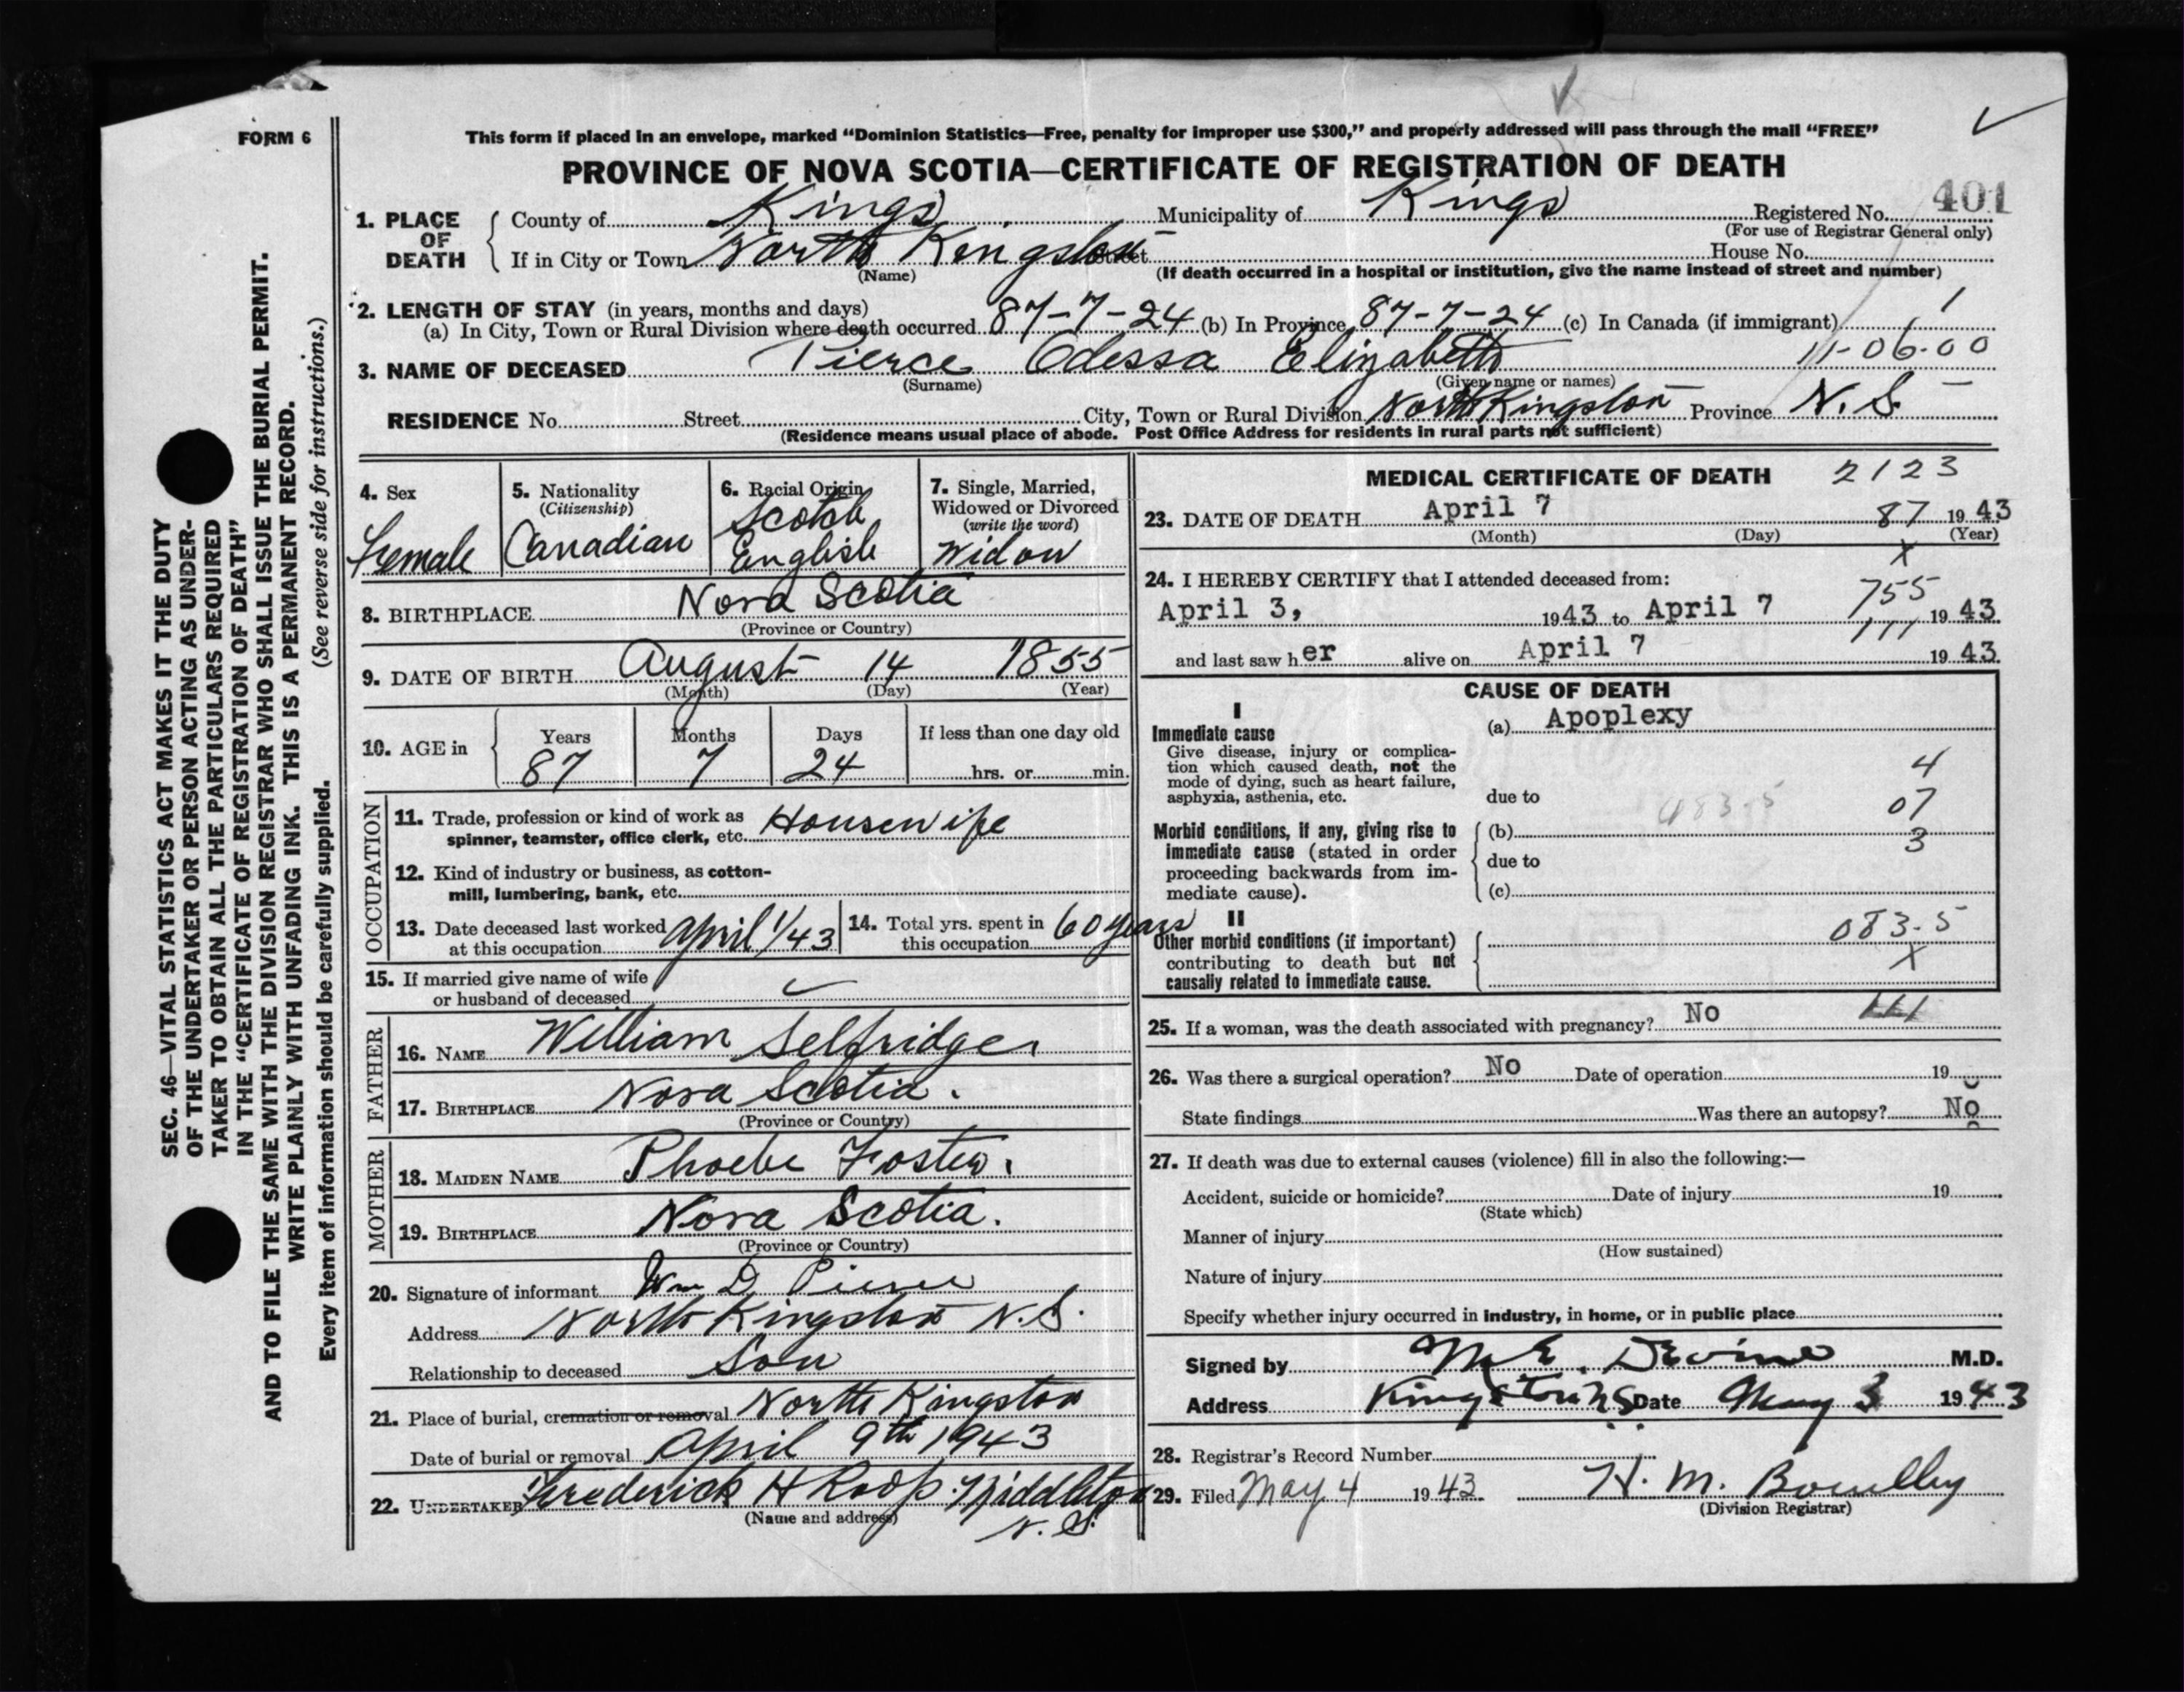 FORM 6
This form if placed in an envelope, marked “Dominion Statistics—Free, penalty for improper use $300,” and properly addressed will pass through the mail “FREE”
PROVINCE OF NOVA SCOTIA—CERTIFICATE OF REGISTRATION OF DEATH
401
1. PLACE OF DEATH { County of Kings Municipality of Kings Registered No.
(For use of Registrar General only)
If in City or Town North Kingston Street House No.
(Name) (If death occurred in a hospital or institution, give the name instead of street and number)
2. LENGTH OF STAY (in years, months and days) 1
(a) In City, Town or Rural Division where death occurred 87-7-24 (b) In Province 87-7-24 (c) In Canada (if immigrant)
11-06-00
3. NAME OF DECEASED Pierce Odessa Elizabeth
(Surname) (Given name or names)
RESIDENCE No. Street City, Town or Rural Division North Kingston Province N.S.
(Residence means usual place of abode. Post Office Address for residents in rural parts not sufficient)
4. Sex
Female
5. Nationality
(Citizenship)
Canadian
6. Racial Origin
Scotch
English
7. Single, Married,
Widowed or Divorced
(write the word)
Widow
8. BIRTHPLACE Nova Scotia
(Province or Country)
9. DATE OF BIRTH August 14 1855
(Month) (Day) (Year)
10. AGE in { Years Months Days If less than one day old
87 7 24 hrs. or min.
OCCUPATION
11. Trade, profession or kind of work as
spinner, teamster, office clerk, etc. Housewife
12. Kind of industry or business, as cotton-
mill, lumbering, bank, etc.
13. Date deceased last worked
at this occupation April 1/43
14. Total yrs. spent in
this occupation 60 years
15. If married give name of wife
or husband of deceased
FATHER
16. NAME William Selfridge
17. BIRTHPLACE Nova Scotia.
(Province or Country)
MOTHER
18. MAIDEN NAME Phoebe Foster.
19. BIRTHPLACE Nova Scotia.
(Province or Country)
20. Signature of informant Wm D Pierce
Address North Kingston N.S.
Relationship to deceased Son
21. Place of burial, cremation or removal North Kingston
Date of burial or removal April 9th 1943
22. UNDERTAKER Frederick H Roop. Middleton
(Name and address) N.S.
MEDICAL CERTIFICATE OF DEATH 2123
23. DATE OF DEATH April 7 87 1943
(Month) (Day) (Year)
X
24. I HEREBY CERTIFY that I attended deceased from:
755
April 3, 1943 to April 7 1943
111
and last saw her alive on April 7 1943
CAUSE OF DEATH
I
Immediate cause
Give disease, injury or complica-
tion which caused death, not the
mode of dying, such as heart failure,
asphyxia, asthenia, etc.
(a) Apoplexy
4
due to 483-5 07
Morbid conditions, if any, giving rise to
immediate cause (stated in order
proceeding backwards from im-
mediate cause).
(b) 3
due to
(c)
II
Other morbid conditions (if important)
contributing to death but not
causally related to immediate cause.
083-5
X
25. If a woman, was the death associated with pregnancy? No 111
26. Was there a surgical operation? No Date of operation 19
State findings Was there an autopsy? No
27. If death was due to external causes (violence) fill in also the following:—
Accident, suicide or homicide? Date of injury 19
(State which)
Manner of injury
(How sustained)
Nature of injury
Specify whether injury occurred in industry, in home, or in public place
Signed by M. E. Devine M.D.
Address Kingston NS Date May 3 1943
28. Registrar's Record Number
29. Filed May 4 1943 H. M.
(Division Registrar)
SEC. 46—VITAL STATISTICS ACT MAKES IT THE DUTY
OF THE UNDERTAKER OR PERSON ACTING AS UNDER-
TAKER TO OBTAIN ALL THE PARTICULARS REQUIRED
IN THE “CERTIFICATE OF REGISTRATION OF DEATH”
AND TO FILE THE SAME WITH THE DIVISION REGISTRAR WHO SHALL ISSUE THE BURIAL PERMIT.
WRITE PLAINLY WITH UNFADING INK. THIS IS A PERMANENT RECORD.
Every item of information should be carefully supplied. (See reverse side for instructions.)